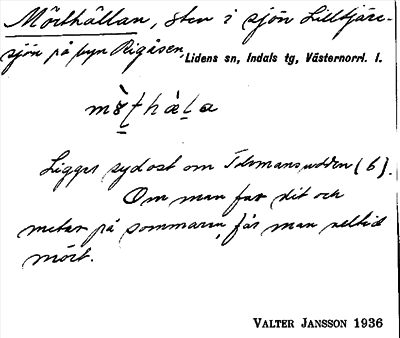 Mörthällan, sten i sjön Lilltjäre-
sjön på byn Rigåsen,
Lidens sn, Indals tg, Västernorrl. l.
Ligger sydost om Telmansudden (6).
Om man far dit och
metar på sommaren, får man alltid
mört.
VALTER JANSSON 1936